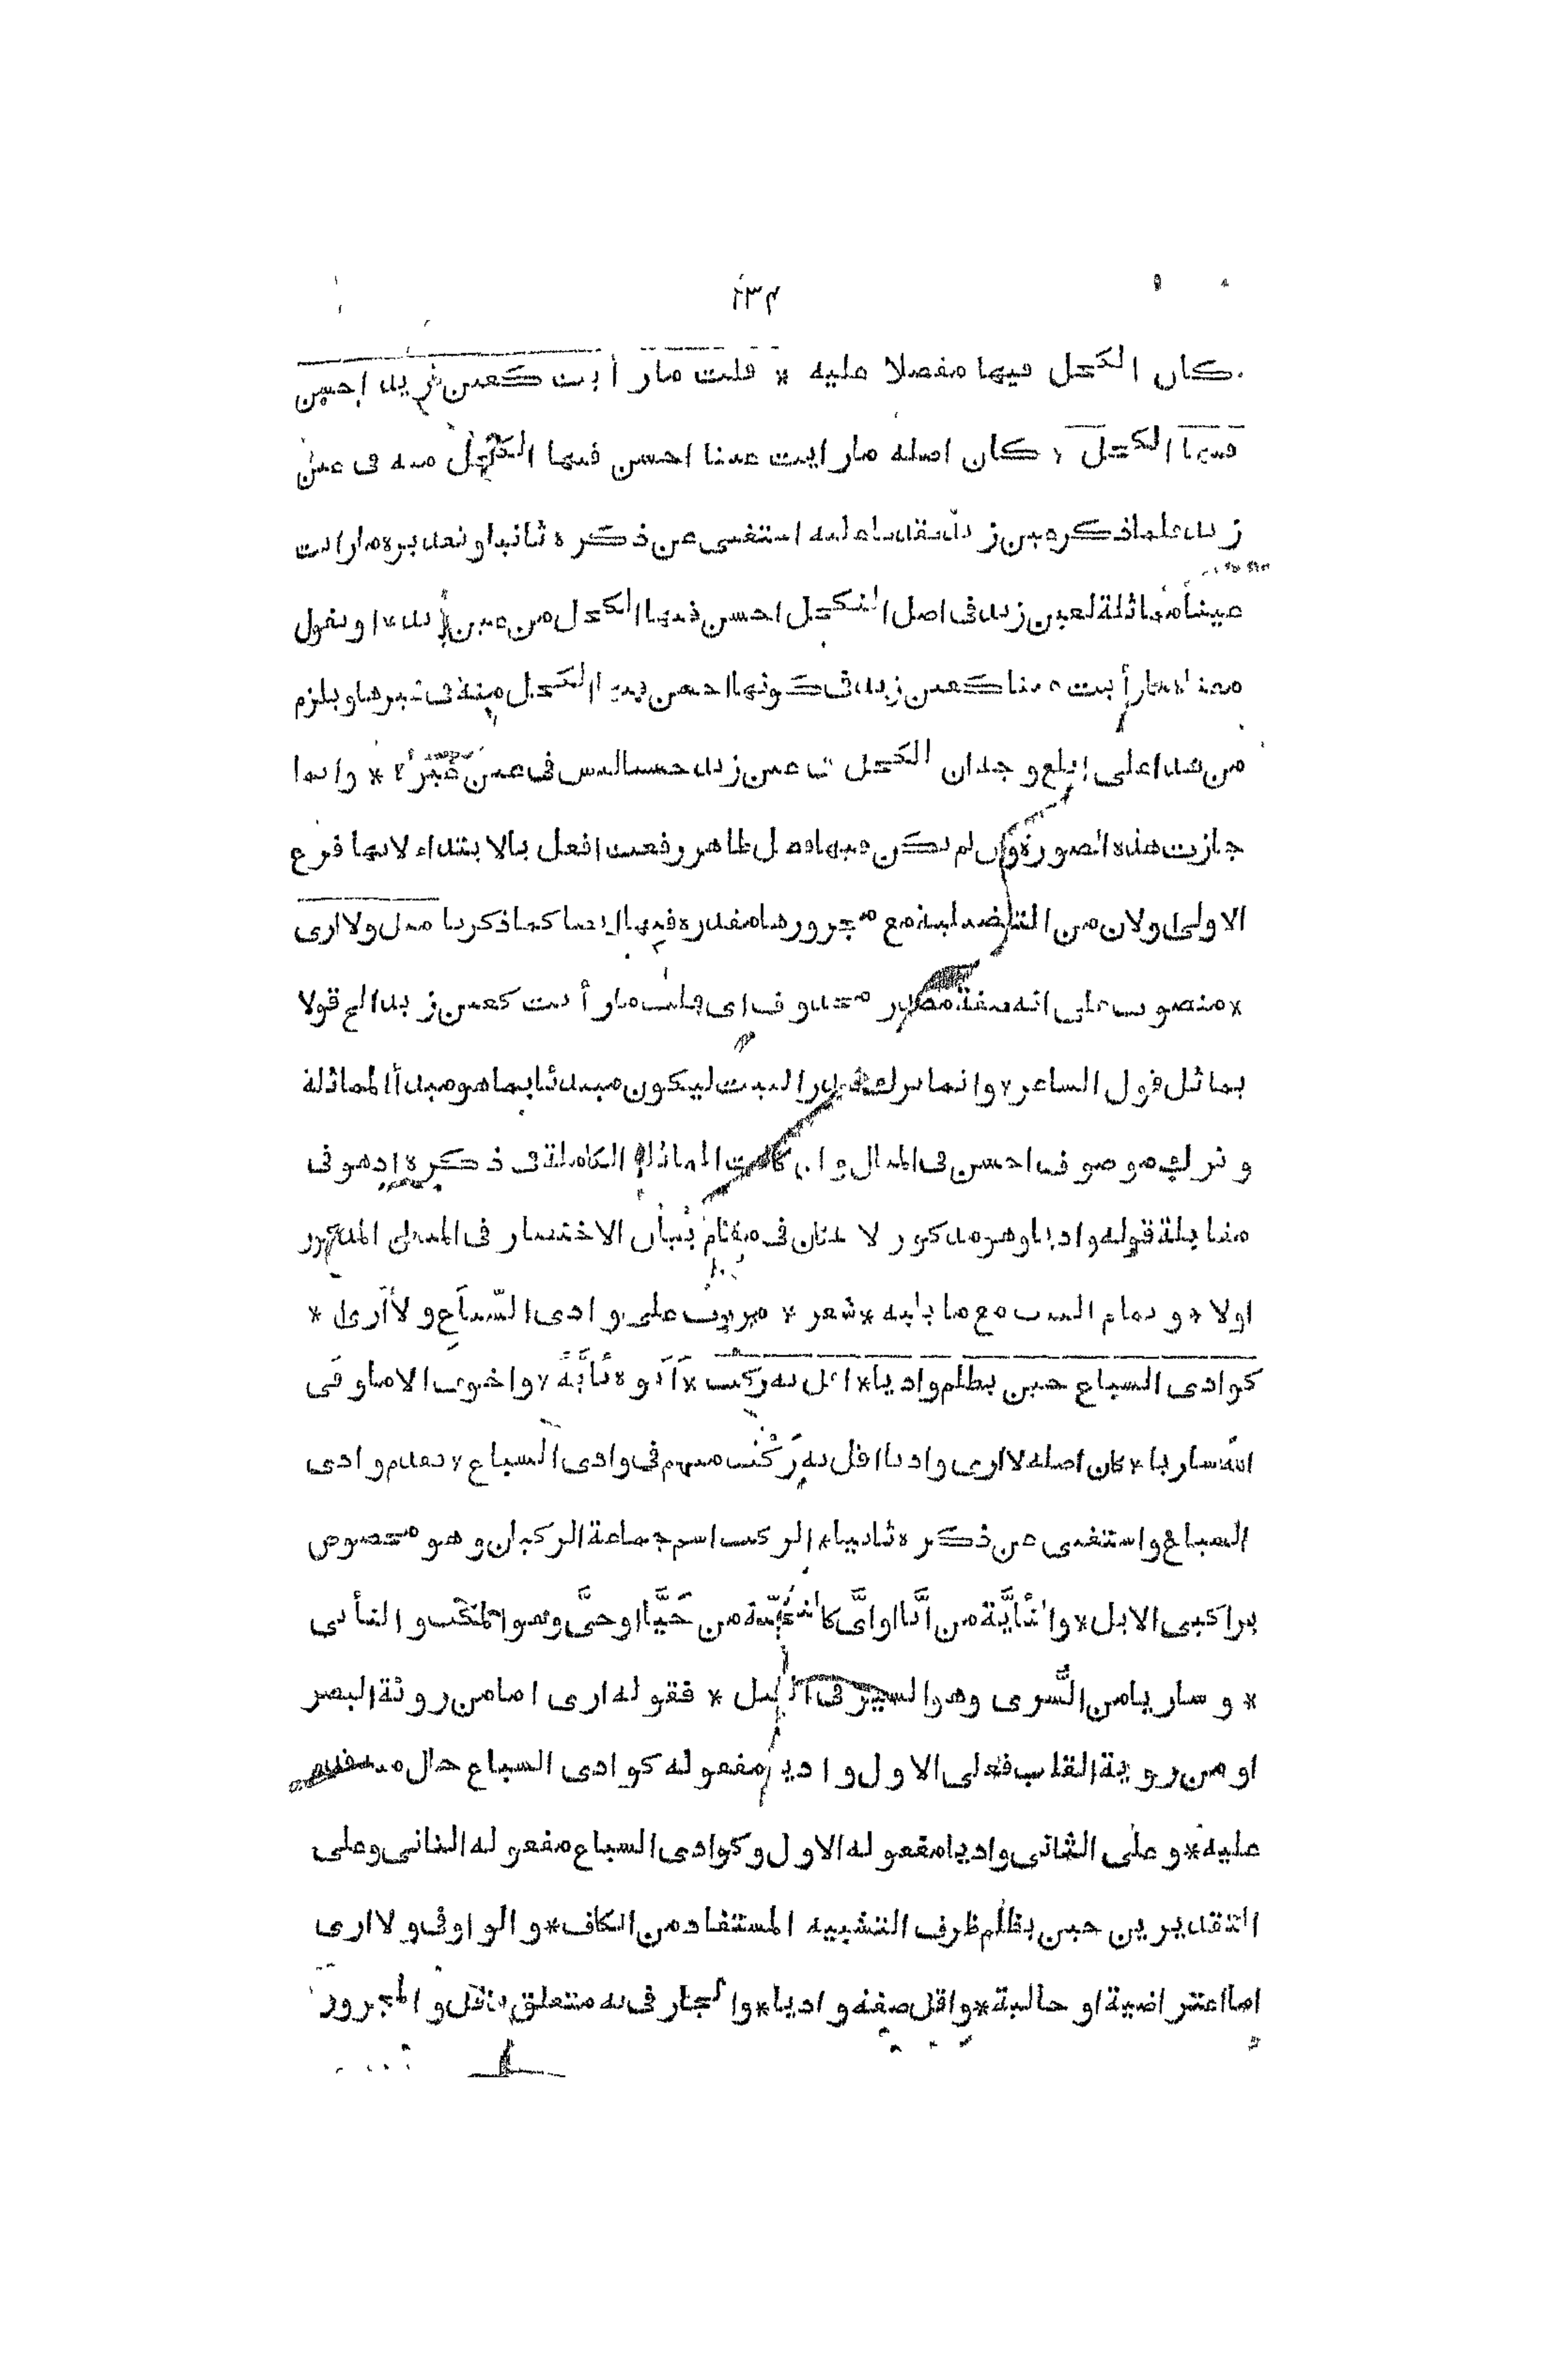 كان الكحل فيها مفضلا عليه * قلت ما رأيت كعين زيد احسن
فيها الكحل * كان اصله ما رايت عينا احسن فيها الكحل منه فى عين
زيد فلما ذكر عين زيد مقدما عليه استغنى عن ذكره ثانيا وتقديره ما رايت
عينا مماثلة لعين زيد فى اصل التكحل احسن فيها الكحل من عين زيد * او نقول
معناه ما رأيت عينا كعين زيد فى كونها احسن فيها الكحل منه فى غيرها ويلزم
من هذا على ابلغ وجه ان الكحل فى عين زيد حسنا ليس فى عين غيره * وانما
جازت هذه الصورة وان لم يكن فيها فصل ظاهر لو رفعت افعل بالابتداء لانها فرع
الاولى ولان من التفضيلية مع مجرورها مقدرة فيها ايضا كما ذكرنا مثل ولا ارى
* منصوب على انه صفة مصدر محذوف اى قلت ما رأيت كعين زيد الخ قولا
يماثل قول الشاعر * وانما ترك صدر البيت ليكون مبتدئا بما هو مبدأ المماثلة
وترك موصوف احسن فى المثال وان كانت المماثلة الكاملة فى ذكره اذ هو فى
مقابلة قوله واديا وهو مذكور لا نه كان فى مقام بيان الاختصار فى المثال المذكور
اولا * وتمام البيت مع ما يليه * شعر * مررت على وادى السباع ولا ارى *
كوادى السباع حين يظلم واديا * اقل به ركب * اتوه تأية * واخوف الا ما وقى
الله ساريا * كان اصله لا ارى واديا اقل به ركب منهم فى وادى السباع * تقدم وادى
السباع واستغنى عن ذكره ثانيا * الركب اسم جماعة الركبان وهو مخصوص
براكبى الابل * والتأية من اَيّا او اَىَّ كالتحية من حَيَّا او حَىَّ وهو المكث والتأنى
* وساريا من السُّرى وهو السير فى الليل * فقوله ارى اما من روئة البصر
او من روية القلب فعلى الاول واديا مفعوله كوادى السباع حال متقدم
عليه * وعلى الثانى واديا مفعوله الاول وكوادى السباع مفعوله الثانى وعلى
التقديرين حين يظلم ظرف التشبيه المستفاد من الكاف * والواو فى ولا ارى
اما اعتراضية او حالية * واقل صفة واديا * والجار فى به متعلق باقل والمجرور